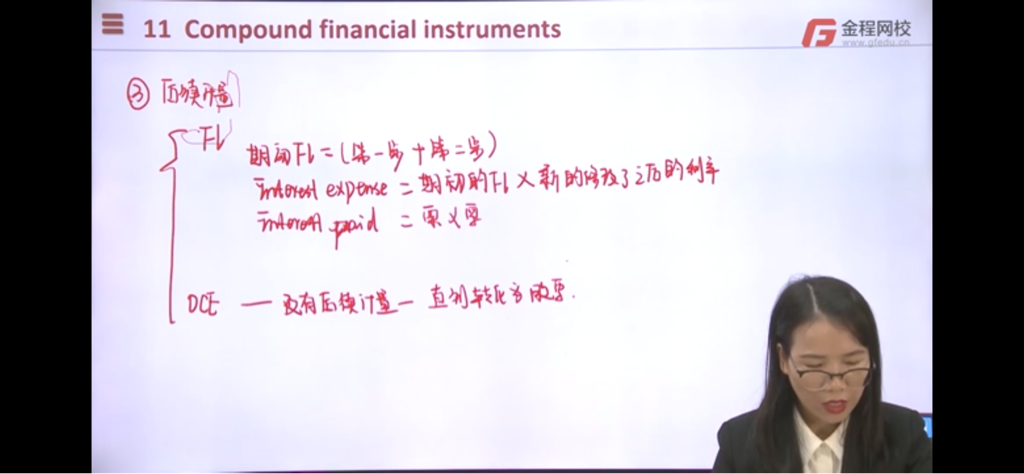 11 Compound financial instruments
金程网校
www.gfedu.cn
③ 后续计量
FL
期初FL=(第一步+第二步)
interest expense = 期初的FL×新的修改了之后的利率
interest paid = 票×票
OCE — 没有后续计量 — 直到转化为股票.